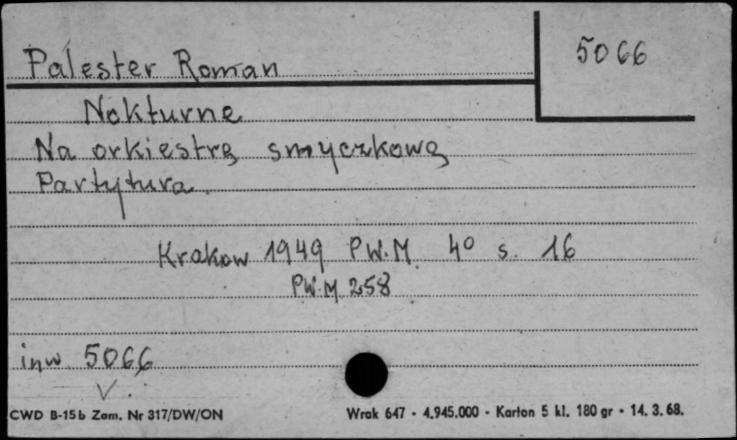 Palester Roman
5066
Nokturne
Na orkiestrę smyczkową
Partytura.
Krakow 1949 PW.M. 4° s. 16
PW.M 258
inw. 5066
V.
CWD B-15b Zam. Nr 317/DW/ON
Wrak 647 - 4.945.000 - Karton 5 kl. 180 gr - 14. 3. 68.